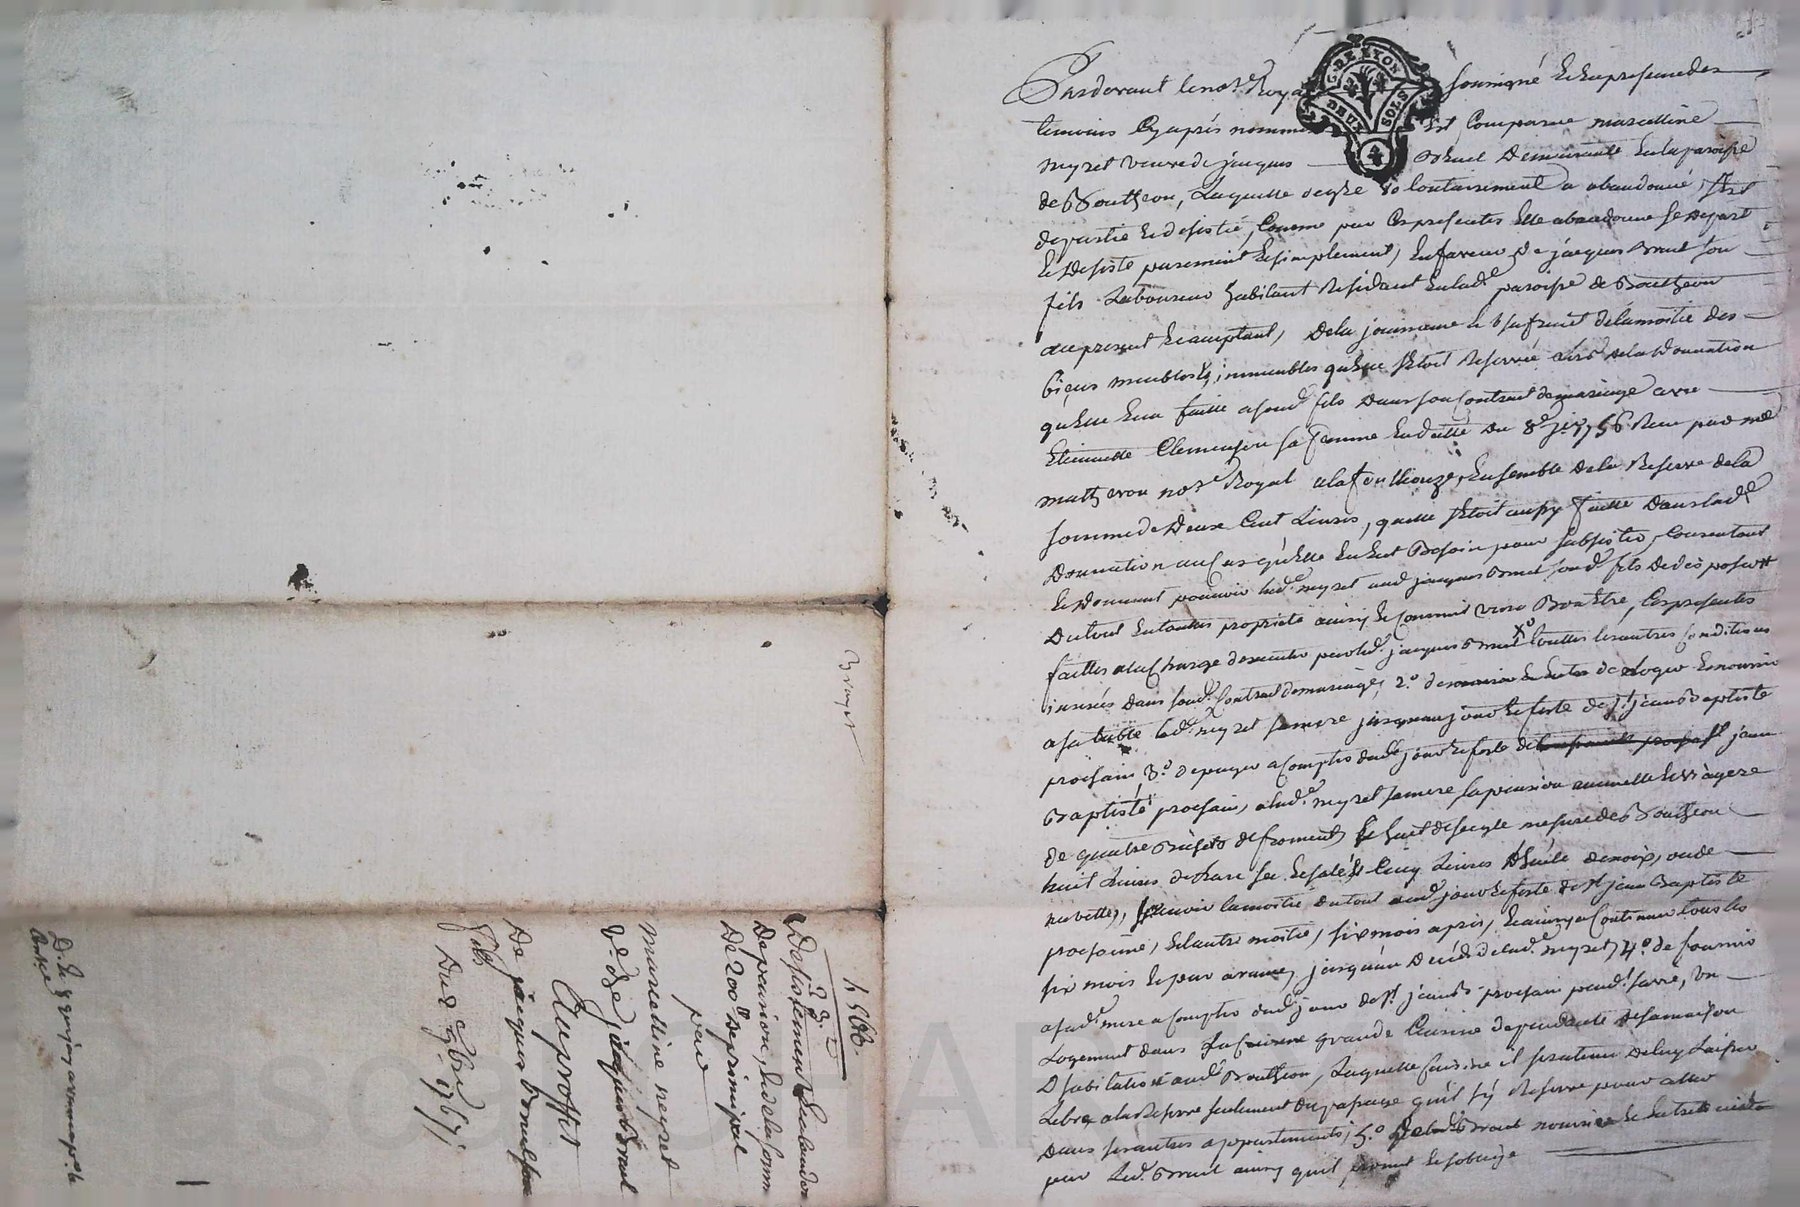 G. DE LYON
DEUX SOLS
4
Pardevant le no.re Royal soussigné et en presence des
temoins Cy apres nommés Est Comparue marcelline
neyret veuve de jacques Bruel Demeurante en la paroisse
de Bouthéon, Laquelle de gré volontairement a abandonné, s'est
departie et desistée, Comme par Ces presentes Elle abandonne se depart
et Desiste purement et simplement, En faveur de jacques Bruel son
fils Laboureur habitant Residant en lad.e paroisse de Bouthéon
acepresent et acceptant, De la jouissance et usufruit de la moitié des
biens meubles et immeubles qu'Elle s'Etoit Reservée lors de la Donnation
qu'Elle En a faitte a sond. fils Dans son Contrat de mariage avec
Etiennette Clemençon sa femme En datte du 8.e 1756 Reçu par me
matheron no.re Royal a la fouillouze, Ensemble de la Reserve de la
somme de Deux Cent Livres, quelle s'Etoit aussy faitte Dans lad.e
Donnation au Cas qu'Elle En Eut Besoin pour subsister, Consentant
et Donnant pouvoir lad.e neyret aud. jacques Bruel sond. fils De disposer
Du tout En toutte propriété ainsy et Comme il verra Bon Etre, Ces presentes
faittes a la Charge d'executer par led. jacques Bruel 1.o touttes les autres Conditions
inserées dans sond. Contrat de mariage, 2.o de loger et nourrir
a sa table lad.e neyret sa mere jusques au jour et feste de st jean Baptiste
prochain 3.o de payer a Compter dud. jour et feste de jean
Baptiste prochain, a lad.e neyret sa mere la pension annuelle et viagere
de quatre Bichets de froment, et huit de seigle mesure de Bouthéon
huit Livres de Lard sec et salé, et Cinq Livres d'huile de noix, ou de
navette, sçavoir la moitié du tout aud. jour et feste de st jean Baptiste
prochaine, Et l'autre moitié, six mois apres, et ainsy a Continuer tous les
six mois et par avance, jusqu'au Décés de lad.e neyret, 4.o de fournir
a sad.e mere a Compter dud. jour de st jean B. prochain pend.t sa vie, un
Logement dans la grande Cuisine dependante de sa maison
D'habitation aud. Bouthéon, Laquelle Cuisine il sera tenu de luy Laisser
Libre a la Reserve seulement du passage qu'il s'y Reserve pour aller
Dans ses autres appartements, 5.o
par led. Bruel ainsy qu'il promet et s'oblige
Brayet
h 506.
Desistement et abandon
De pension, et de la somme
De 200 ll de principal
par
Marcelline neyret
v.e de jacques Bruel
Au proffit
De jacques Bruel son
fils
Du 2 9bre 1767.